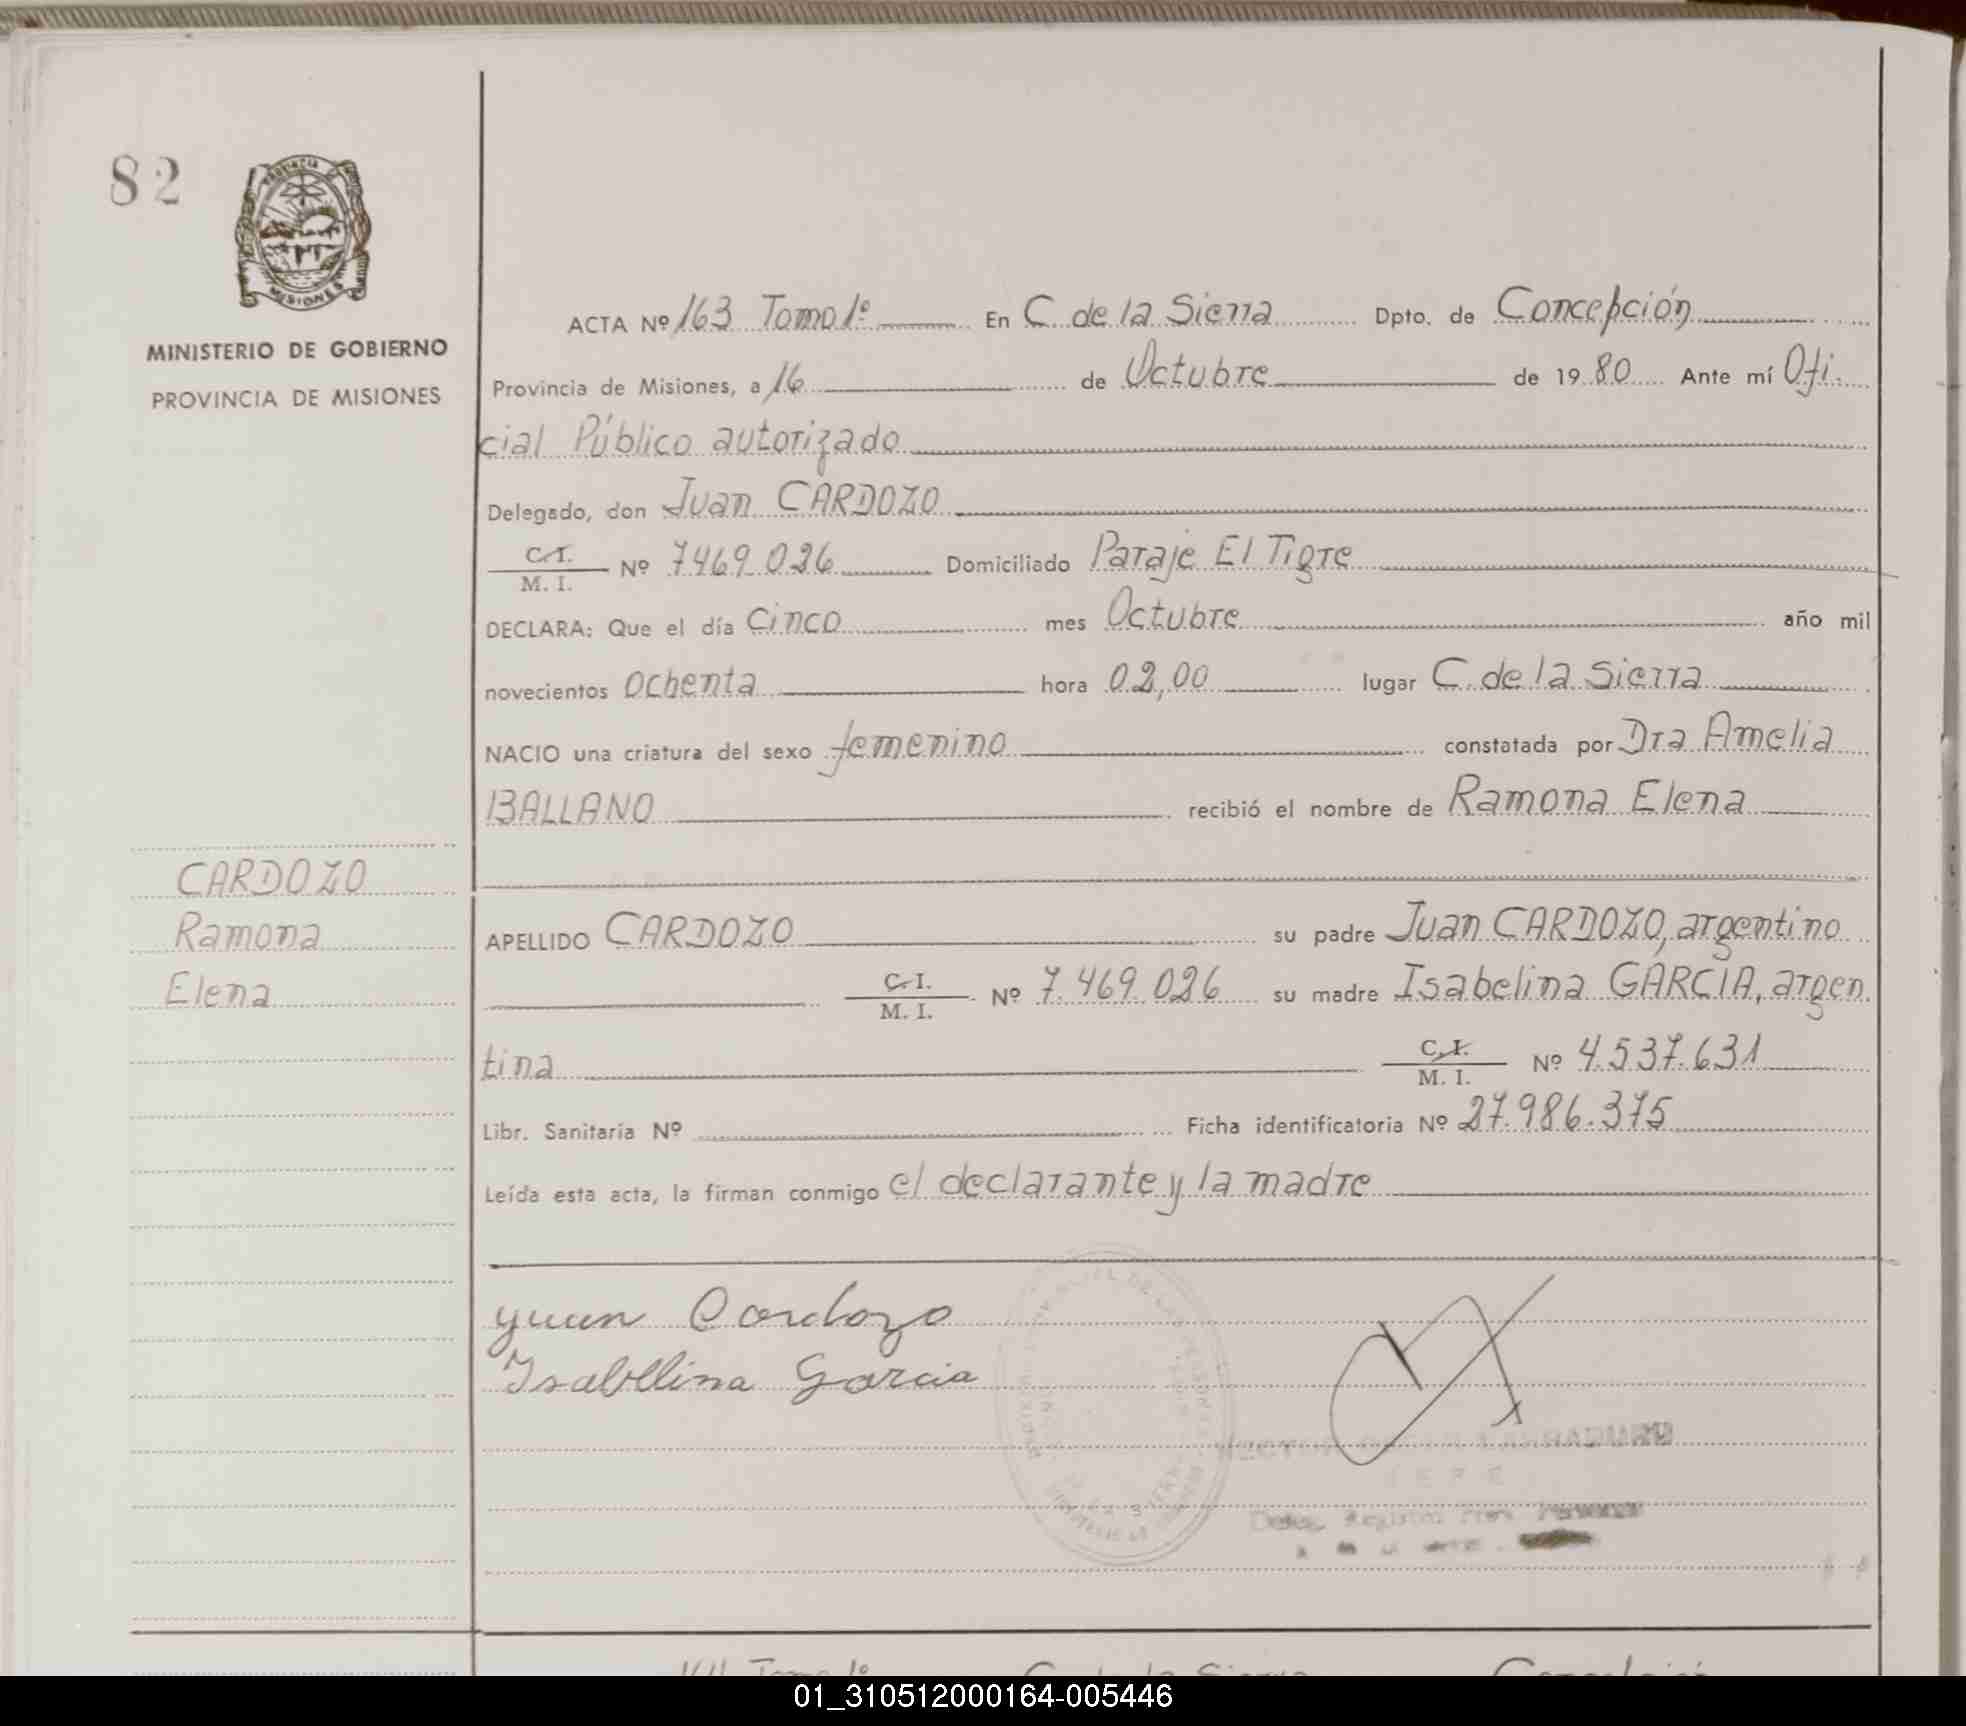 82
PROVINCIA
MISIONES
MINISTERIO DE GOBIERNO
PROVINCIA DE MISIONES
ACTA Nº 163 Tomo 1º En C. de la Sierra Dpto. de Concepción
Provincia de Misiones, a 16 de Octubre de 1980 Ante mí Ofi.
cial Público autorizado
Delegado, don Juan CARDOZO
C.I.
M. I. Nº 7469.026 Domiciliado Paraje El Tigre
DECLARA: Que el día cinco mes Octubre año mil
novecientos ochenta hora 02,00 lugar C. de la Sierra
NACIO una criatura del sexo femenino constatada por Dra Amelia
BALLANO recibió el nombre de Ramona Elena
CARDOZO
Ramona
Elena
APELLIDO CARDOZO su padre Juan CARDOZO, argentino
C.I.
M. I. Nº 7.469.026 su madre Isabelina GARCIA, argen
tina C.I.
M. I. Nº 4.537.631
Libr. Sanitaria Nº Ficha identificatoria Nº 27.986.375
Leída esta acta, la firman conmigo el declarante y la madre
yuan Cardozo
Isabellina Garcia
HECTOR
JEFE
01_310512000164-005446